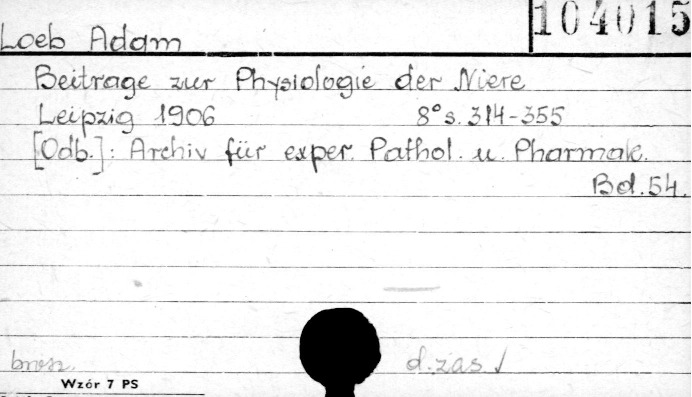 104015
Loeb Adam
Beitrage zur Physiologie der Niere
Leipzig 1906 8° s. 314-355
[Odb.]: Archiv für exper. Pathol. u. Pharmak.
Bd. 54.
brosz. d. zas
Wzór 7 PS